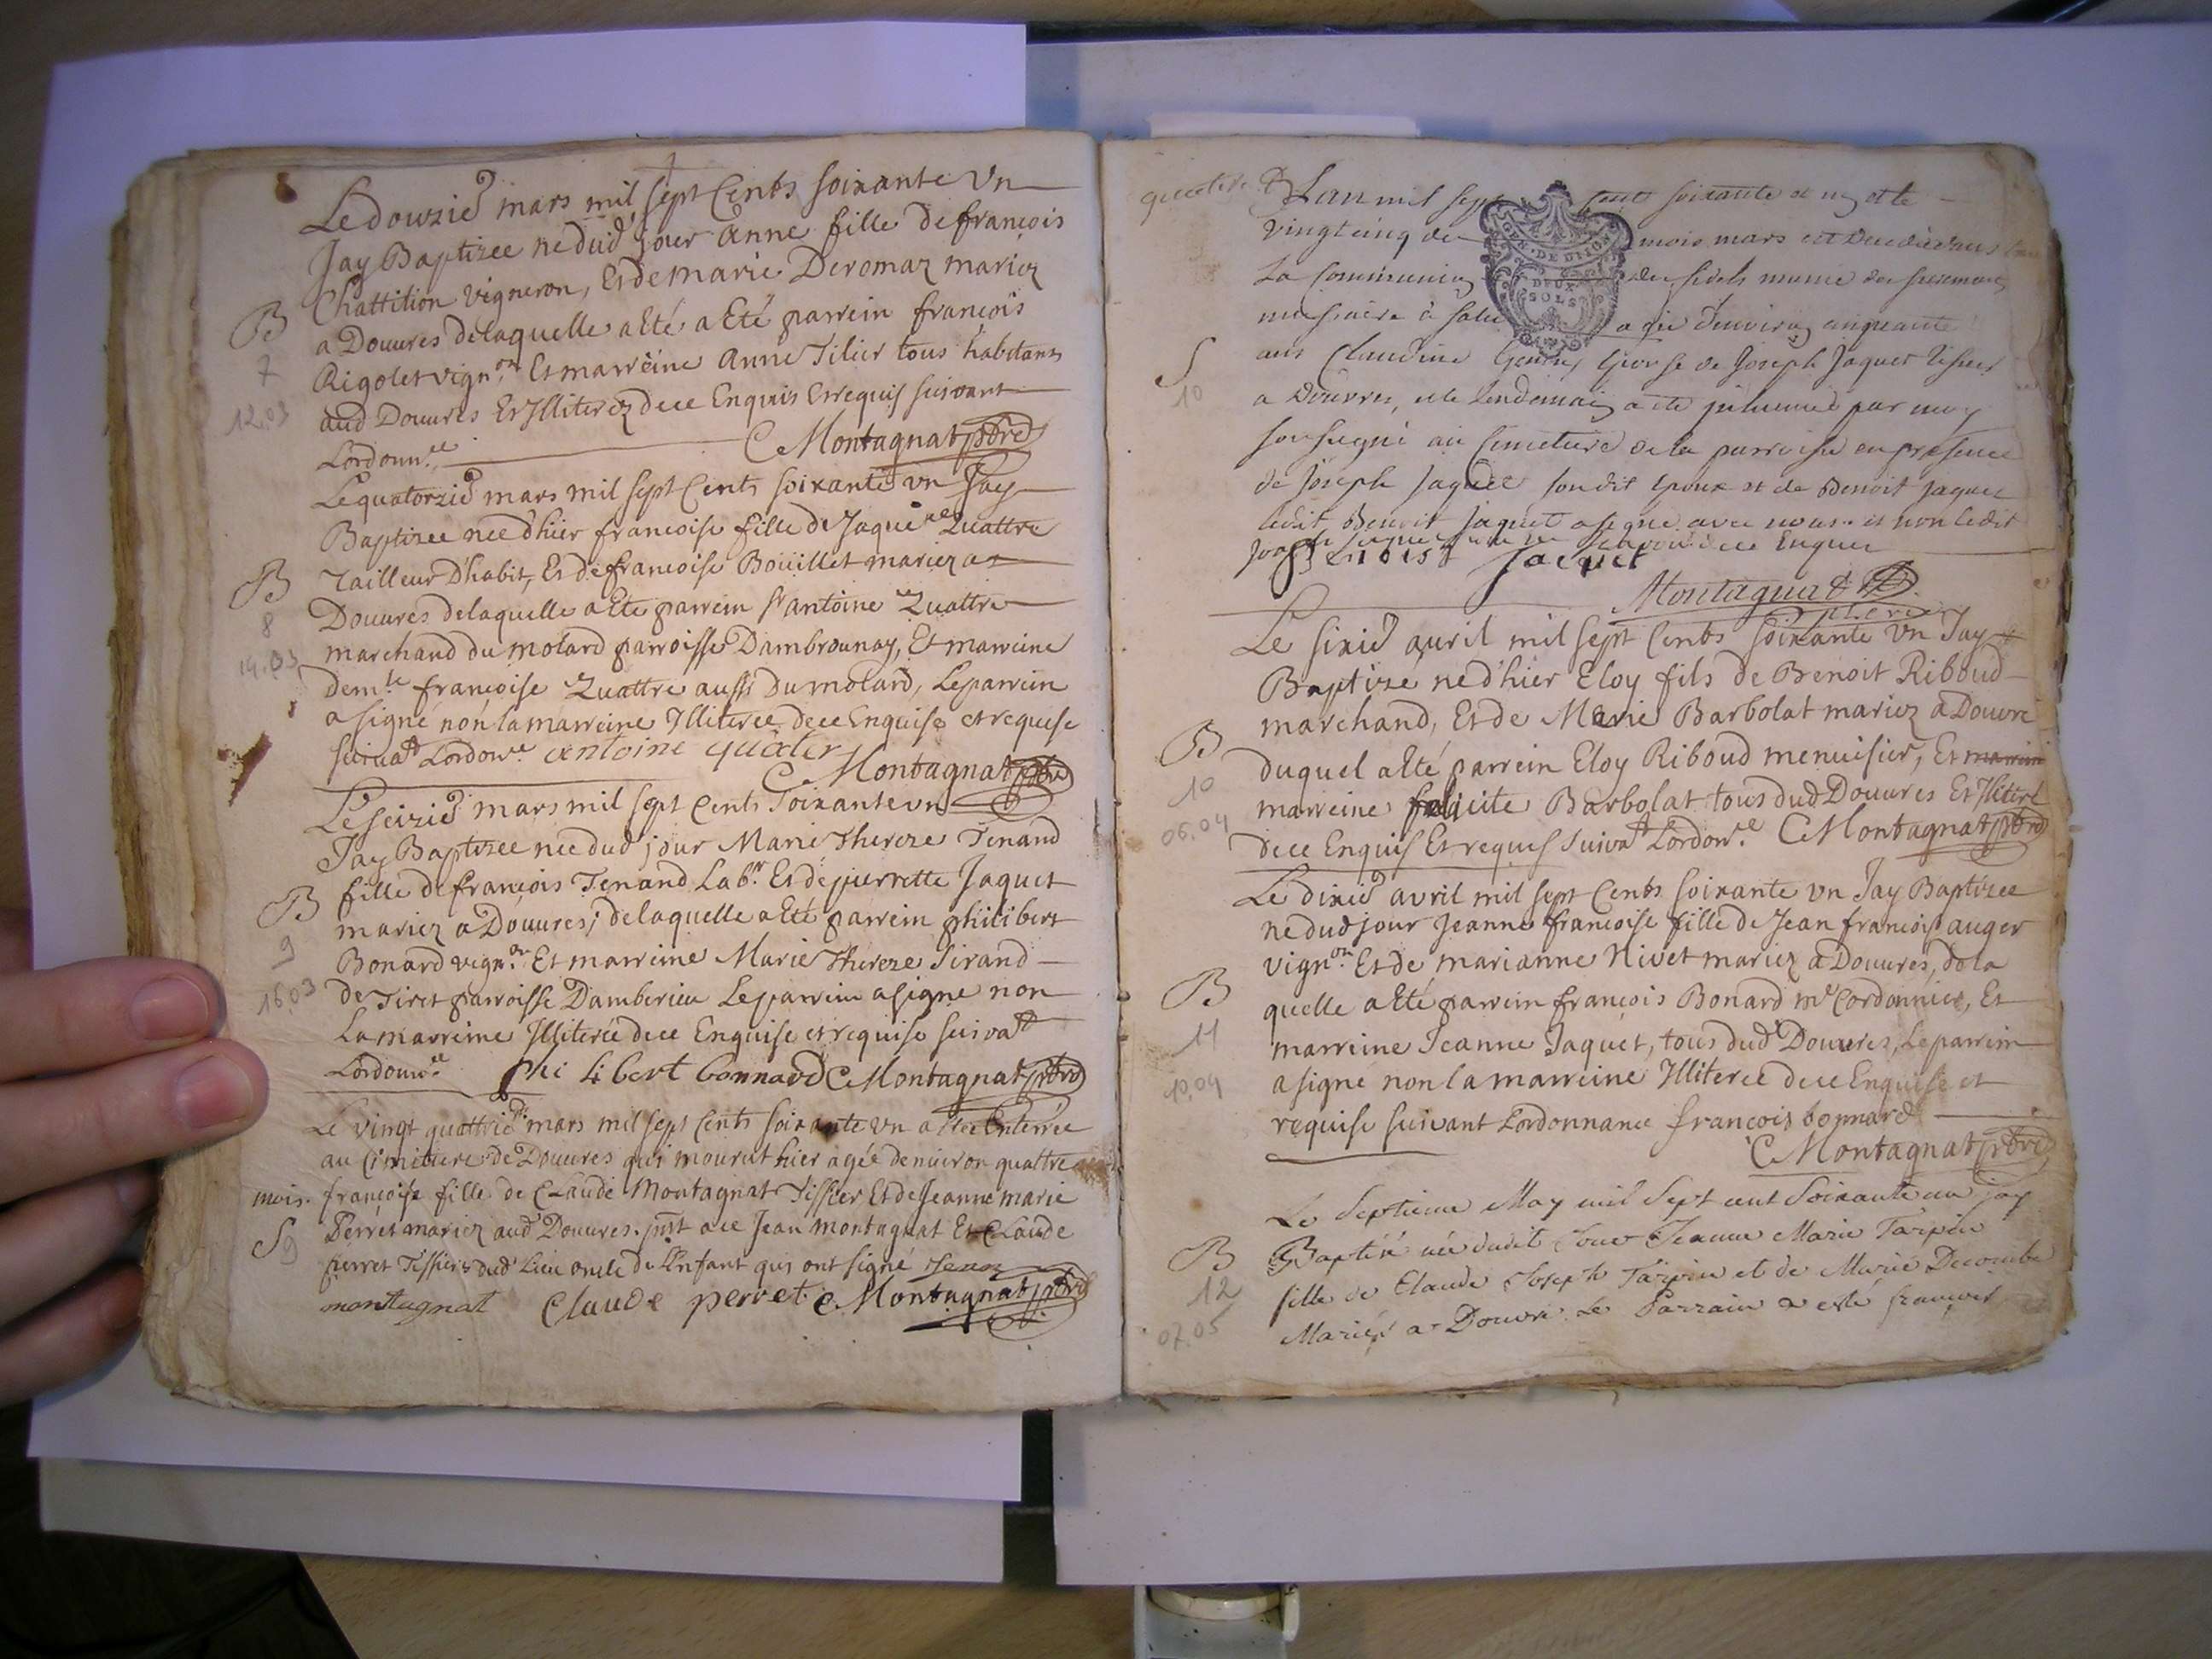 Le douzie mars mil sept Cents soixante Vn
Jay Baptizee ne dud jour anne fille de francois
Chattilion vigneron, Et de Marie Deromaz mariez
B
a Douures delaquelle a Eté a Eté parrein francois
7
Rigolet vign.on Et marreine anne Tilier tous habitans
12.03
aud Douures Et Illiterez de ce Enquis Et requis suivant
Lordonn.ce C Montagnat ptre
Le quatorzie mars mil sept Cents soixante vn Jay
Baptizee nee d'hier francoise fille de Jaque Quattre
B
Tailleur D'habit, Et de francoise Boüillet mariez a
Douures delaquelle a Ete parrein sr antoine Quattre
8
marchand du molard parroisse Dambrounay, Et marreine
14.03
dem.le françoise Quattre aussi Du molard, Le parrein
a signé non la marreine Illiteree de ce Enquise et requise
suiva.t Lordon.ce antoine quater
C Montagnat ptre
Le seizie mars mil sept Cents Soixante vn
Jay Baptizee nee dud jour Marie Thereze Tenand
B
fille de francois Tenand Lab.r Et de pierrette Jaquet
mariez a Douures; delaquelle a Eté parrein philibert
9
Bonard vign.on Et marreine Marie Thereze Sirand
16.03
de Tiret parroisse Damberieu Le parrein a signe non
La marreine Illiteree de ce Enquise et requise suiva.t
Lordonn.ce phi libert bonnard C Montagnat ptre
Le vingt quattrie mars mil sept Cents soixante vn a Eté Enterrée
au Cimitiere de Douures qui mourut hier agée denuiron quattre
mois. françoise fille de Claude Montagnat Tissier Et de Jeanne marie
S
9
Perret mariez aud Douures. pnt a ce Jean montagnat Et Claude
pierret Tissiers dud Lieu oncle de L'Enfant qui ont signé Jean
montagnat Claude perret C Montagnat ptre
Lan mil sept cent soixante et un et le
vingt cinq de mois mars est
La Communion des fidels munie des
a
ans Claudine Epouse de Joseph Jaquet tissier
S
10
a Douvres, et le lendemain a été inhumée par moy
soussigné au Cimetiere de la parroisse en presence
de Joseph Jaquet sondit Epoux et de Benoit Jaquet
ledit Benoit Jaquet a signé avec nous et non ledit
Joseph Jaquet de ce Enquis
Benoist Jacquet
Montagnat ptre
Le sixie avril mil sept Cents soixante vn Jay
Baptize ne d'hier Eloy fils de Benoit Riboud
marchand, Et de Marie Barbolat mariez a Douvre
B
duquel a Eté parrein Eloy Riboud menuisier, Et marreine
10
marreine felicite Barbolat tous dud Douures Et Illiteré
06.04
de ce Enquis Et requis suiva.t Lordon.ce C Montagnat ptre
Le dixie avril mil sept Cents soixante vn Jay Baptizee
ne dud jour Jeanne francoise fille de Jean francois auger
vign.on Et de marianne Nivet mariez a Douures, de la
B
quelle a Eté parrein françois Bonard m.e Cordonnier, Et
11
marreine Jeanne Jaquet, tous dud Douures, Le parrein
10.04
a signé non la marreine Illiteree de ce Enquise et
requise suivant Lordonnance francois bonnard
C Montagnat ptre
Le Septieme May mil Sept cent Soixante un jay
B
Baptisé née dudit Jour Jeanne Marie Tarpin
12
fille de Claude Joseph Tarpin et de Marie Decombe
07.05
Mariés a Douvre Le Parrain a esté françois